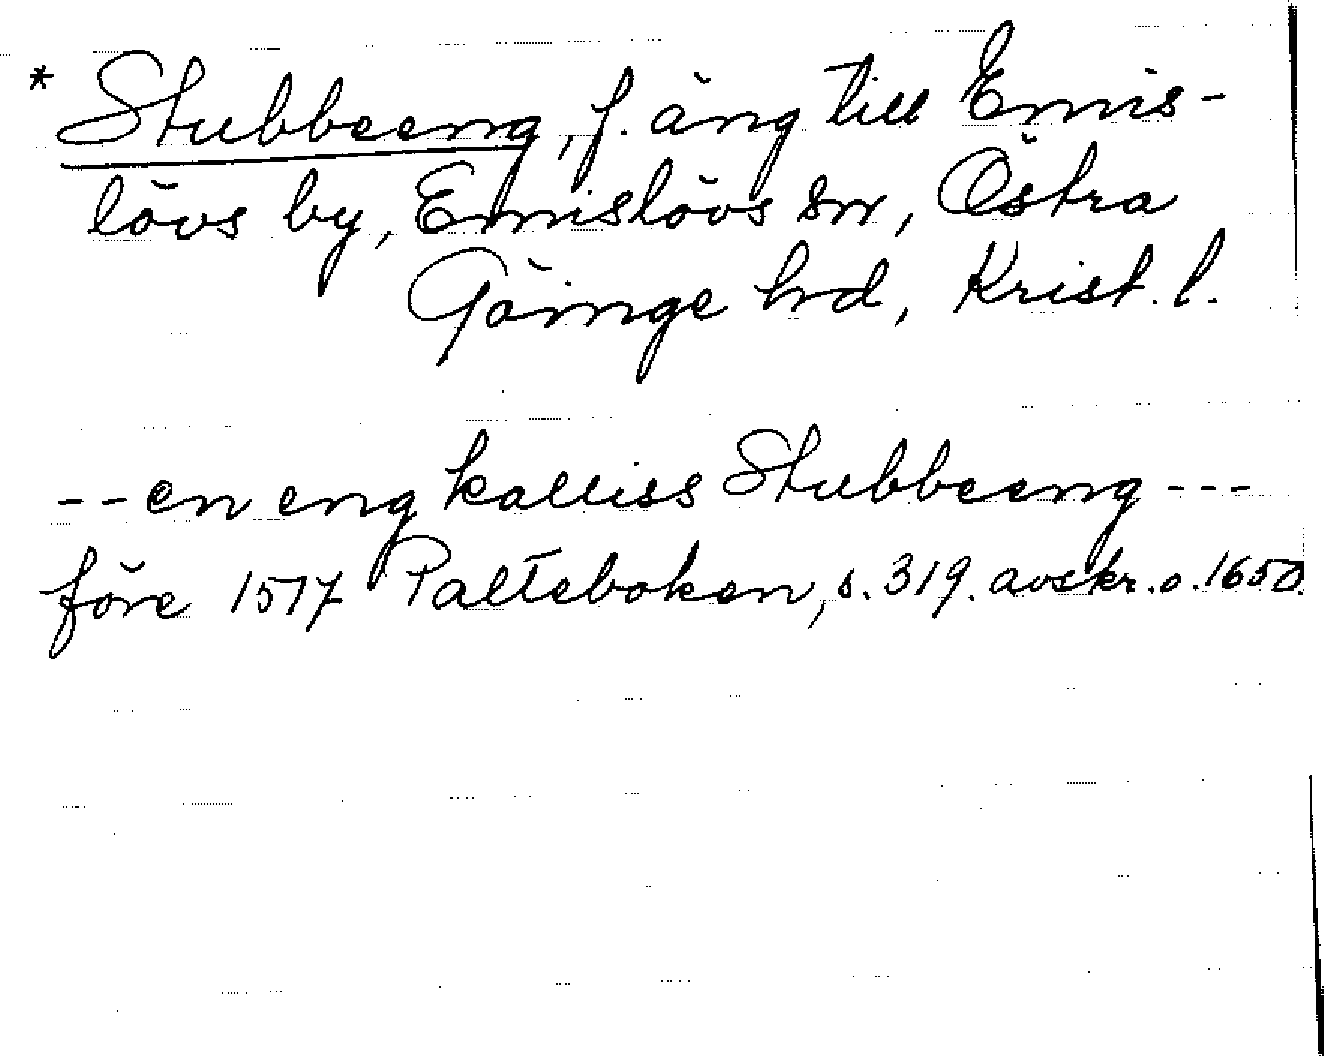 * Stubbeeng, f. äng till Emis-
lövs by, Emislövs sn, Östra
Göinge hd, Krist. l.
--en eng kalliss Stubbeeng---
före 1517 Palteboken, s. 319. avskr. o. 1650.